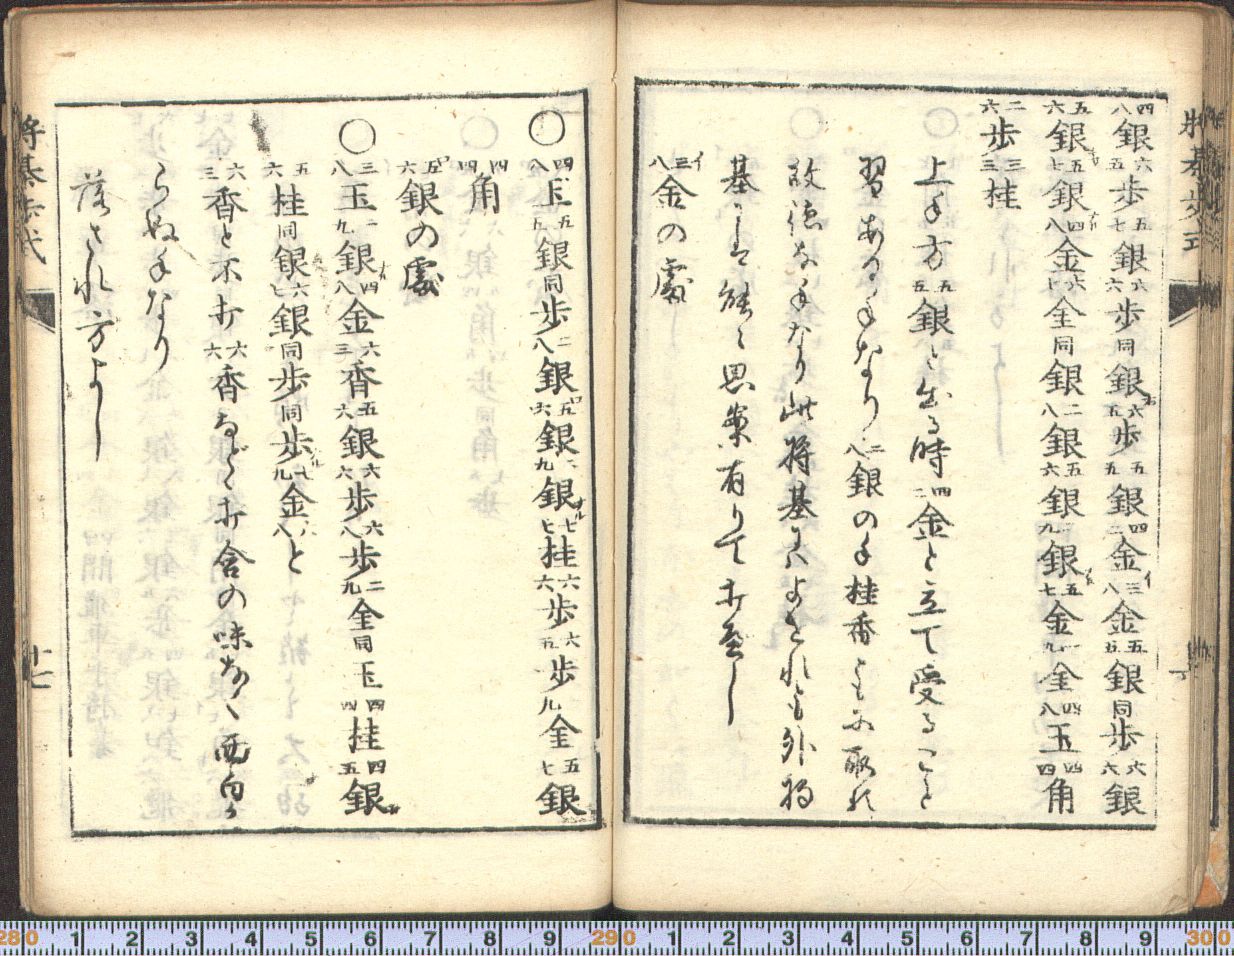 四八銀六五歩五七銀六六歩同銀六五歩五五銀四二金三八金五五銀同歩六六銀
五六銀五七銀四八金六七金同銀二八銀五六銀九銀五七金九一金四八玉四四角
二六歩三三桂
上手方五五銀と出る時四二金と立て受ることと
習ある手なり二八銀の手桂香ともに取れ
故徳な手なり此将棊にはよけれども外将
棊には能々思案有りて打べし
三八金の処
○四八玉五五銀同歩二八銀五六銀九銀七七桂六六歩六五歩九金五七銀
四四角
五六銀の処
○三八玉二九銀四八金六三香五六銀六六歩六八歩二九金同玉四四桂四五銀
五六桂同銀六七銀同歩同歩七九金八と
六三香と不打六六香などと打合の味なく面白か
らぬ手なり
落され方よし
将棊歩式
十七